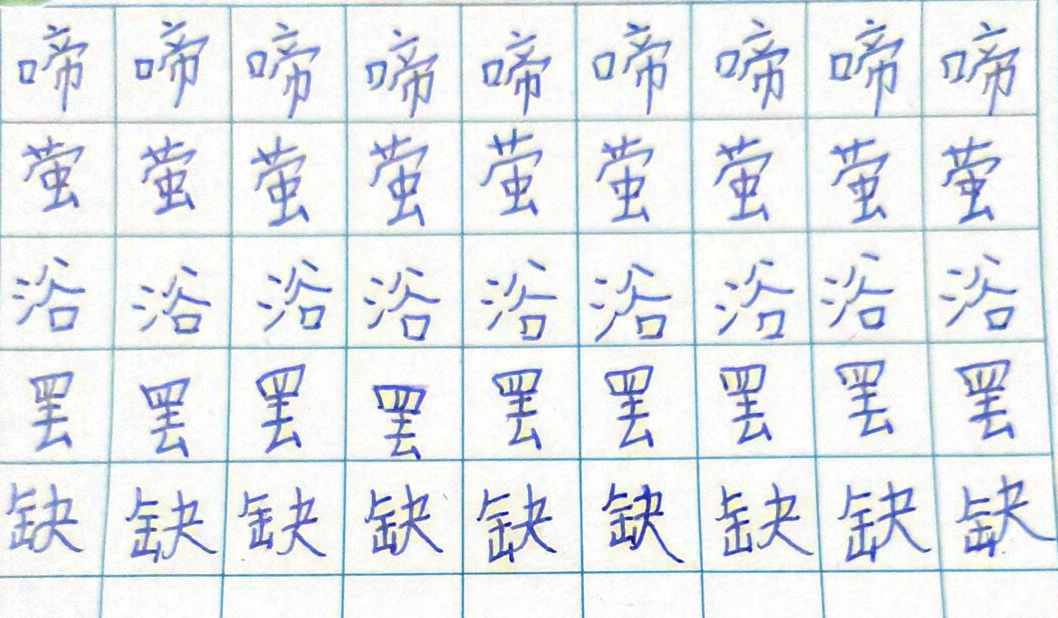 啼啼啼啼啼啼啼啼啼
萤萤萤萤萤萤萤萤萤
浴浴浴浴浴浴浴浴浴
罢罢罢罢罢罢罢罢罢
缺缺缺缺缺缺缺缺缺